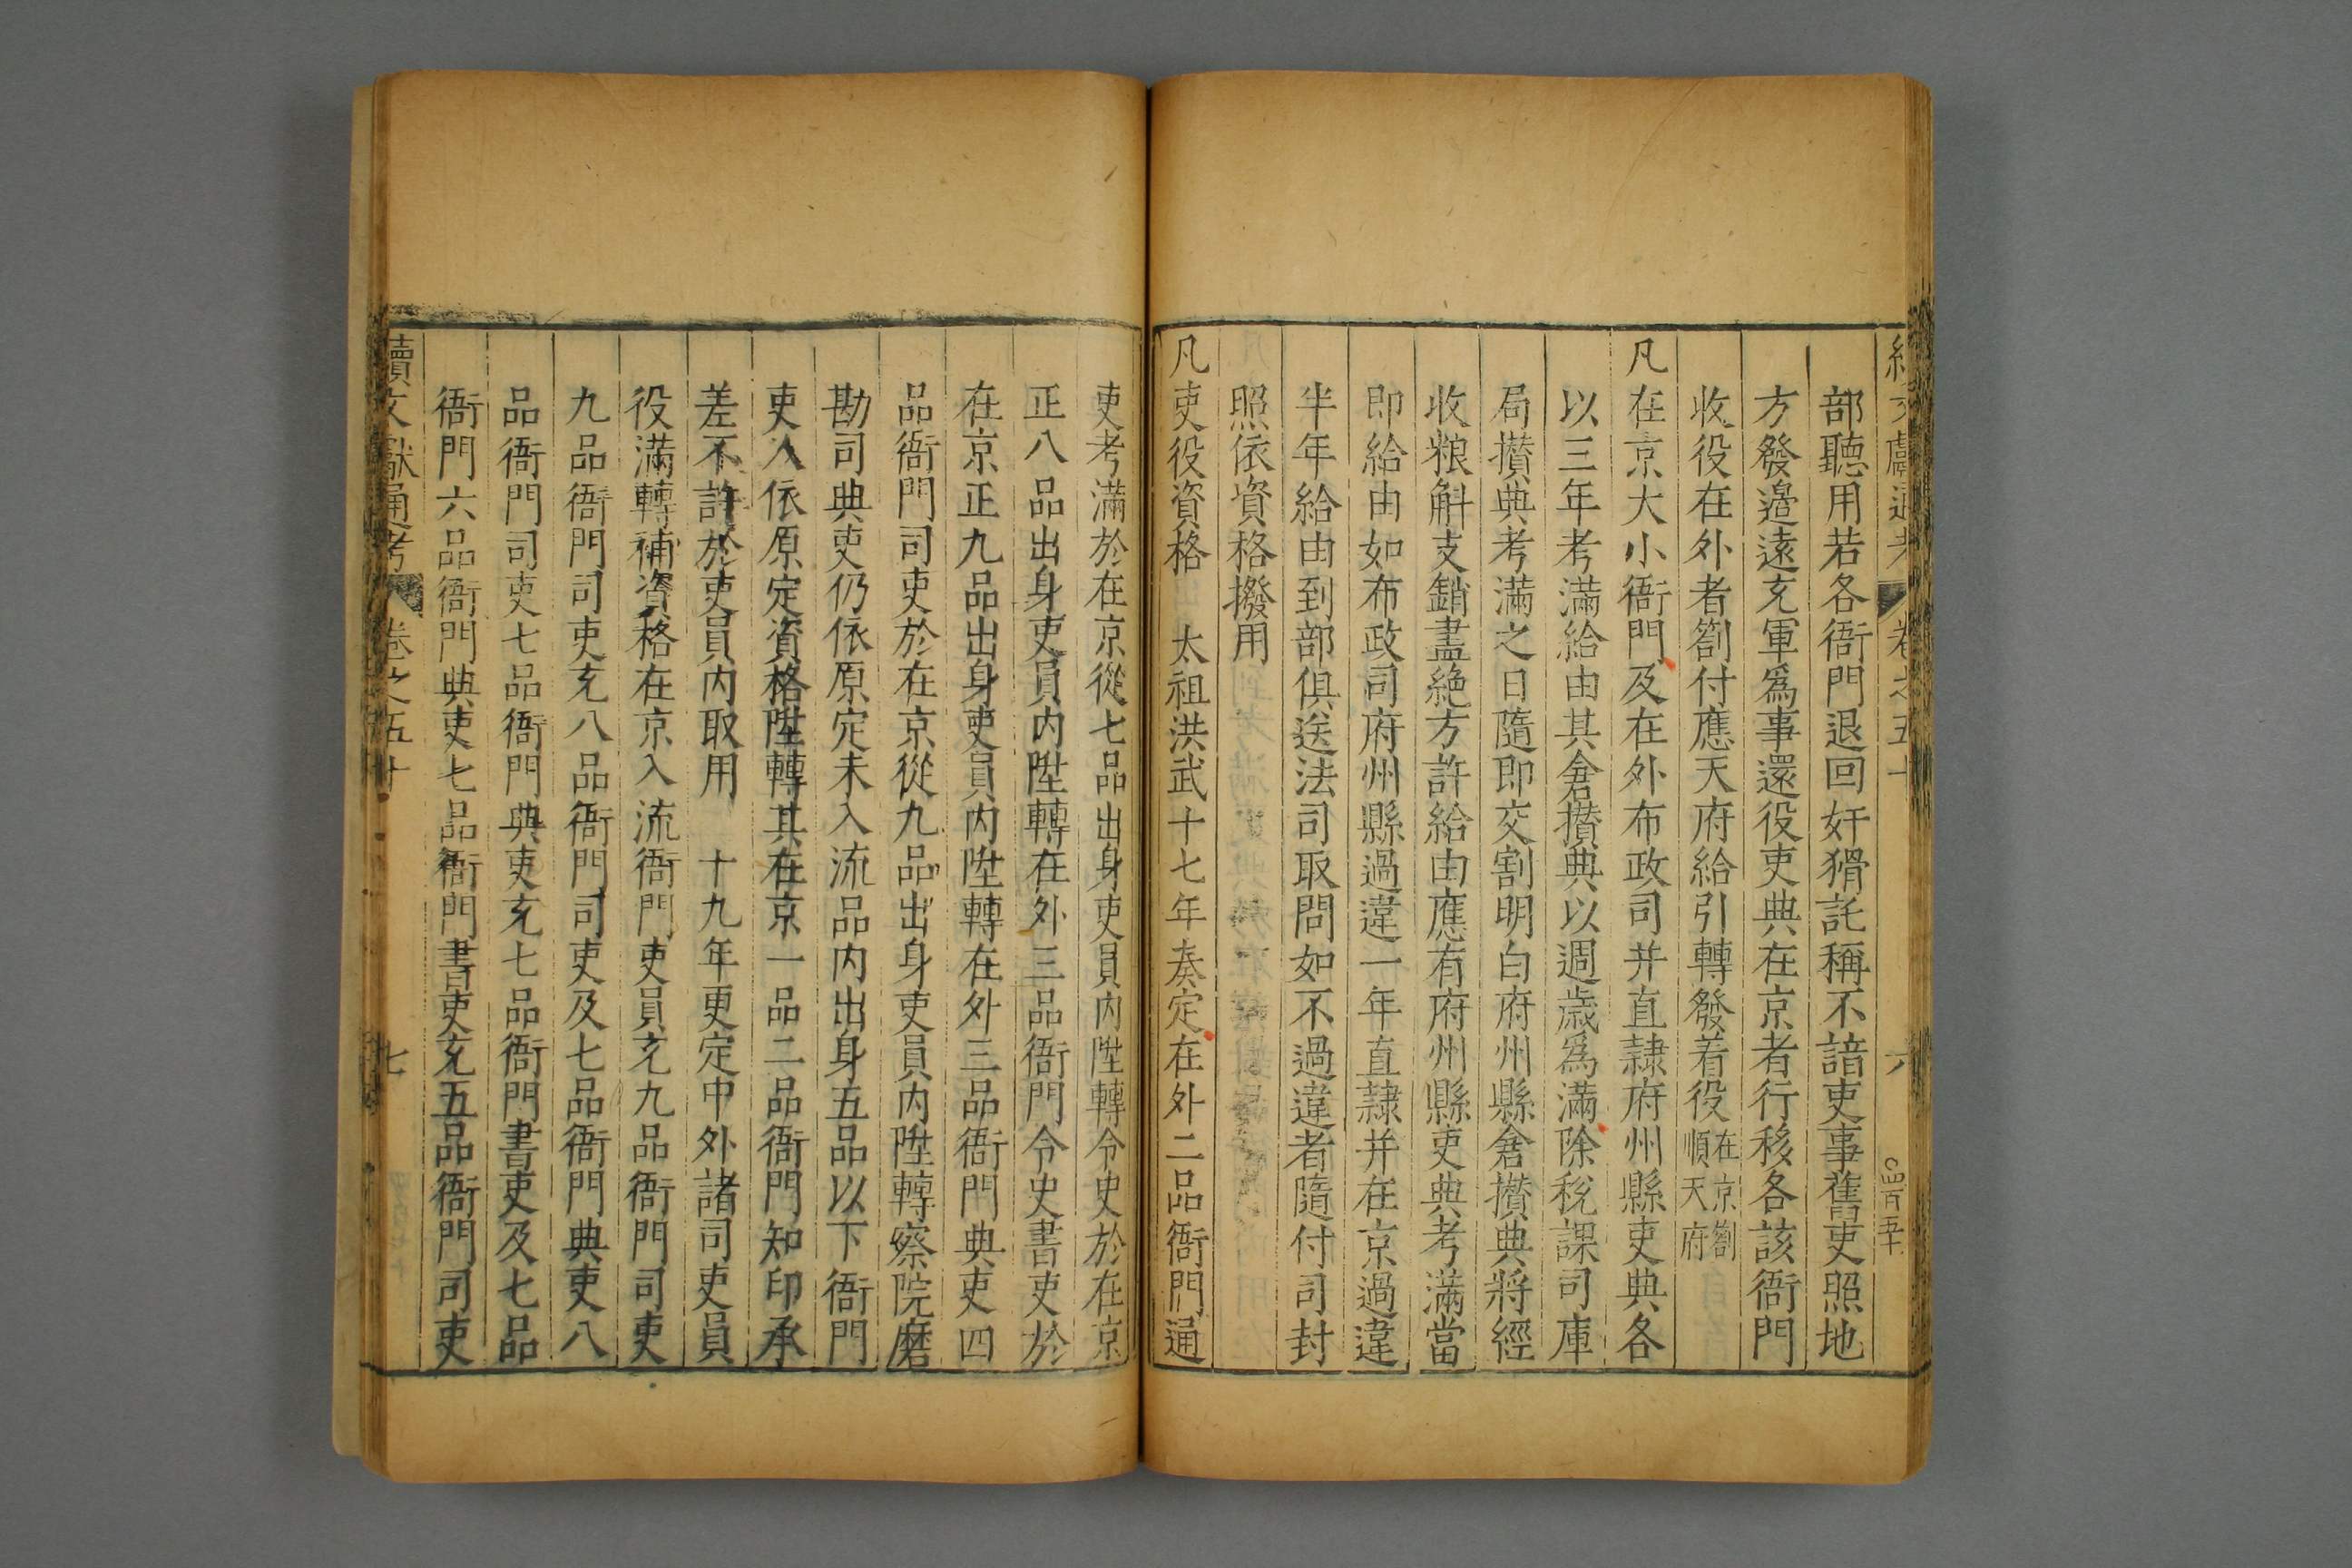 續文獻通考 卷之五十 六 四百五十
部聽用若各衙門退回奸猾託稱不諳吏事舊吏照地
方發邉遠充軍爲事還役吏典在京者行移各該衙門
收役在外者劄付應天府給引轉發着役在京劄順天府
凡在京大小衙門及在外布政司并直隷府州縣吏典各
以三年考滿給由其倉攅典以週歲爲滿除稅課司庫
局攅典考滿之日隨即交割明白府州縣倉攅典將經
收粮斛支銷盡絶方許給由應有府州縣吏典考滿當
即給由如布政司府州縣過違一年直隷并在京過違
半年給由到部俱送法司取問如不過違者隨付司封
照依資格撥用
凡吏役資格 太祖洪武十七年奏定在外二品衙門通
吏考滿於在京從七品出身吏員内陞轉令史於在京
正八品出身吏員内陞轉在外三品衙門令史書吏於
在京正九品出身吏員内陞轉在外三品衙門典吏四
品衙門司吏於在京從九品出身吏員内陞轉察院磨
勘司典吏仍依原定未入流品内出身五品以下衙門
吏入依原定資格陞轉其在京一品二品衙門知印承
差不許於吏員内取用 十九年更定中外諸司吏員
役滿轉補資格在京入流衙門吏員充九品衙門司吏
九品衙門司吏充八品衙門司吏及七品衙門典吏八
品衙門司吏七品衙門典吏充七品衙門書吏及七品
衙門六品衙門典吏七品衙門書吏充五品衙門司吏
續文獻通考 卷之五十 七